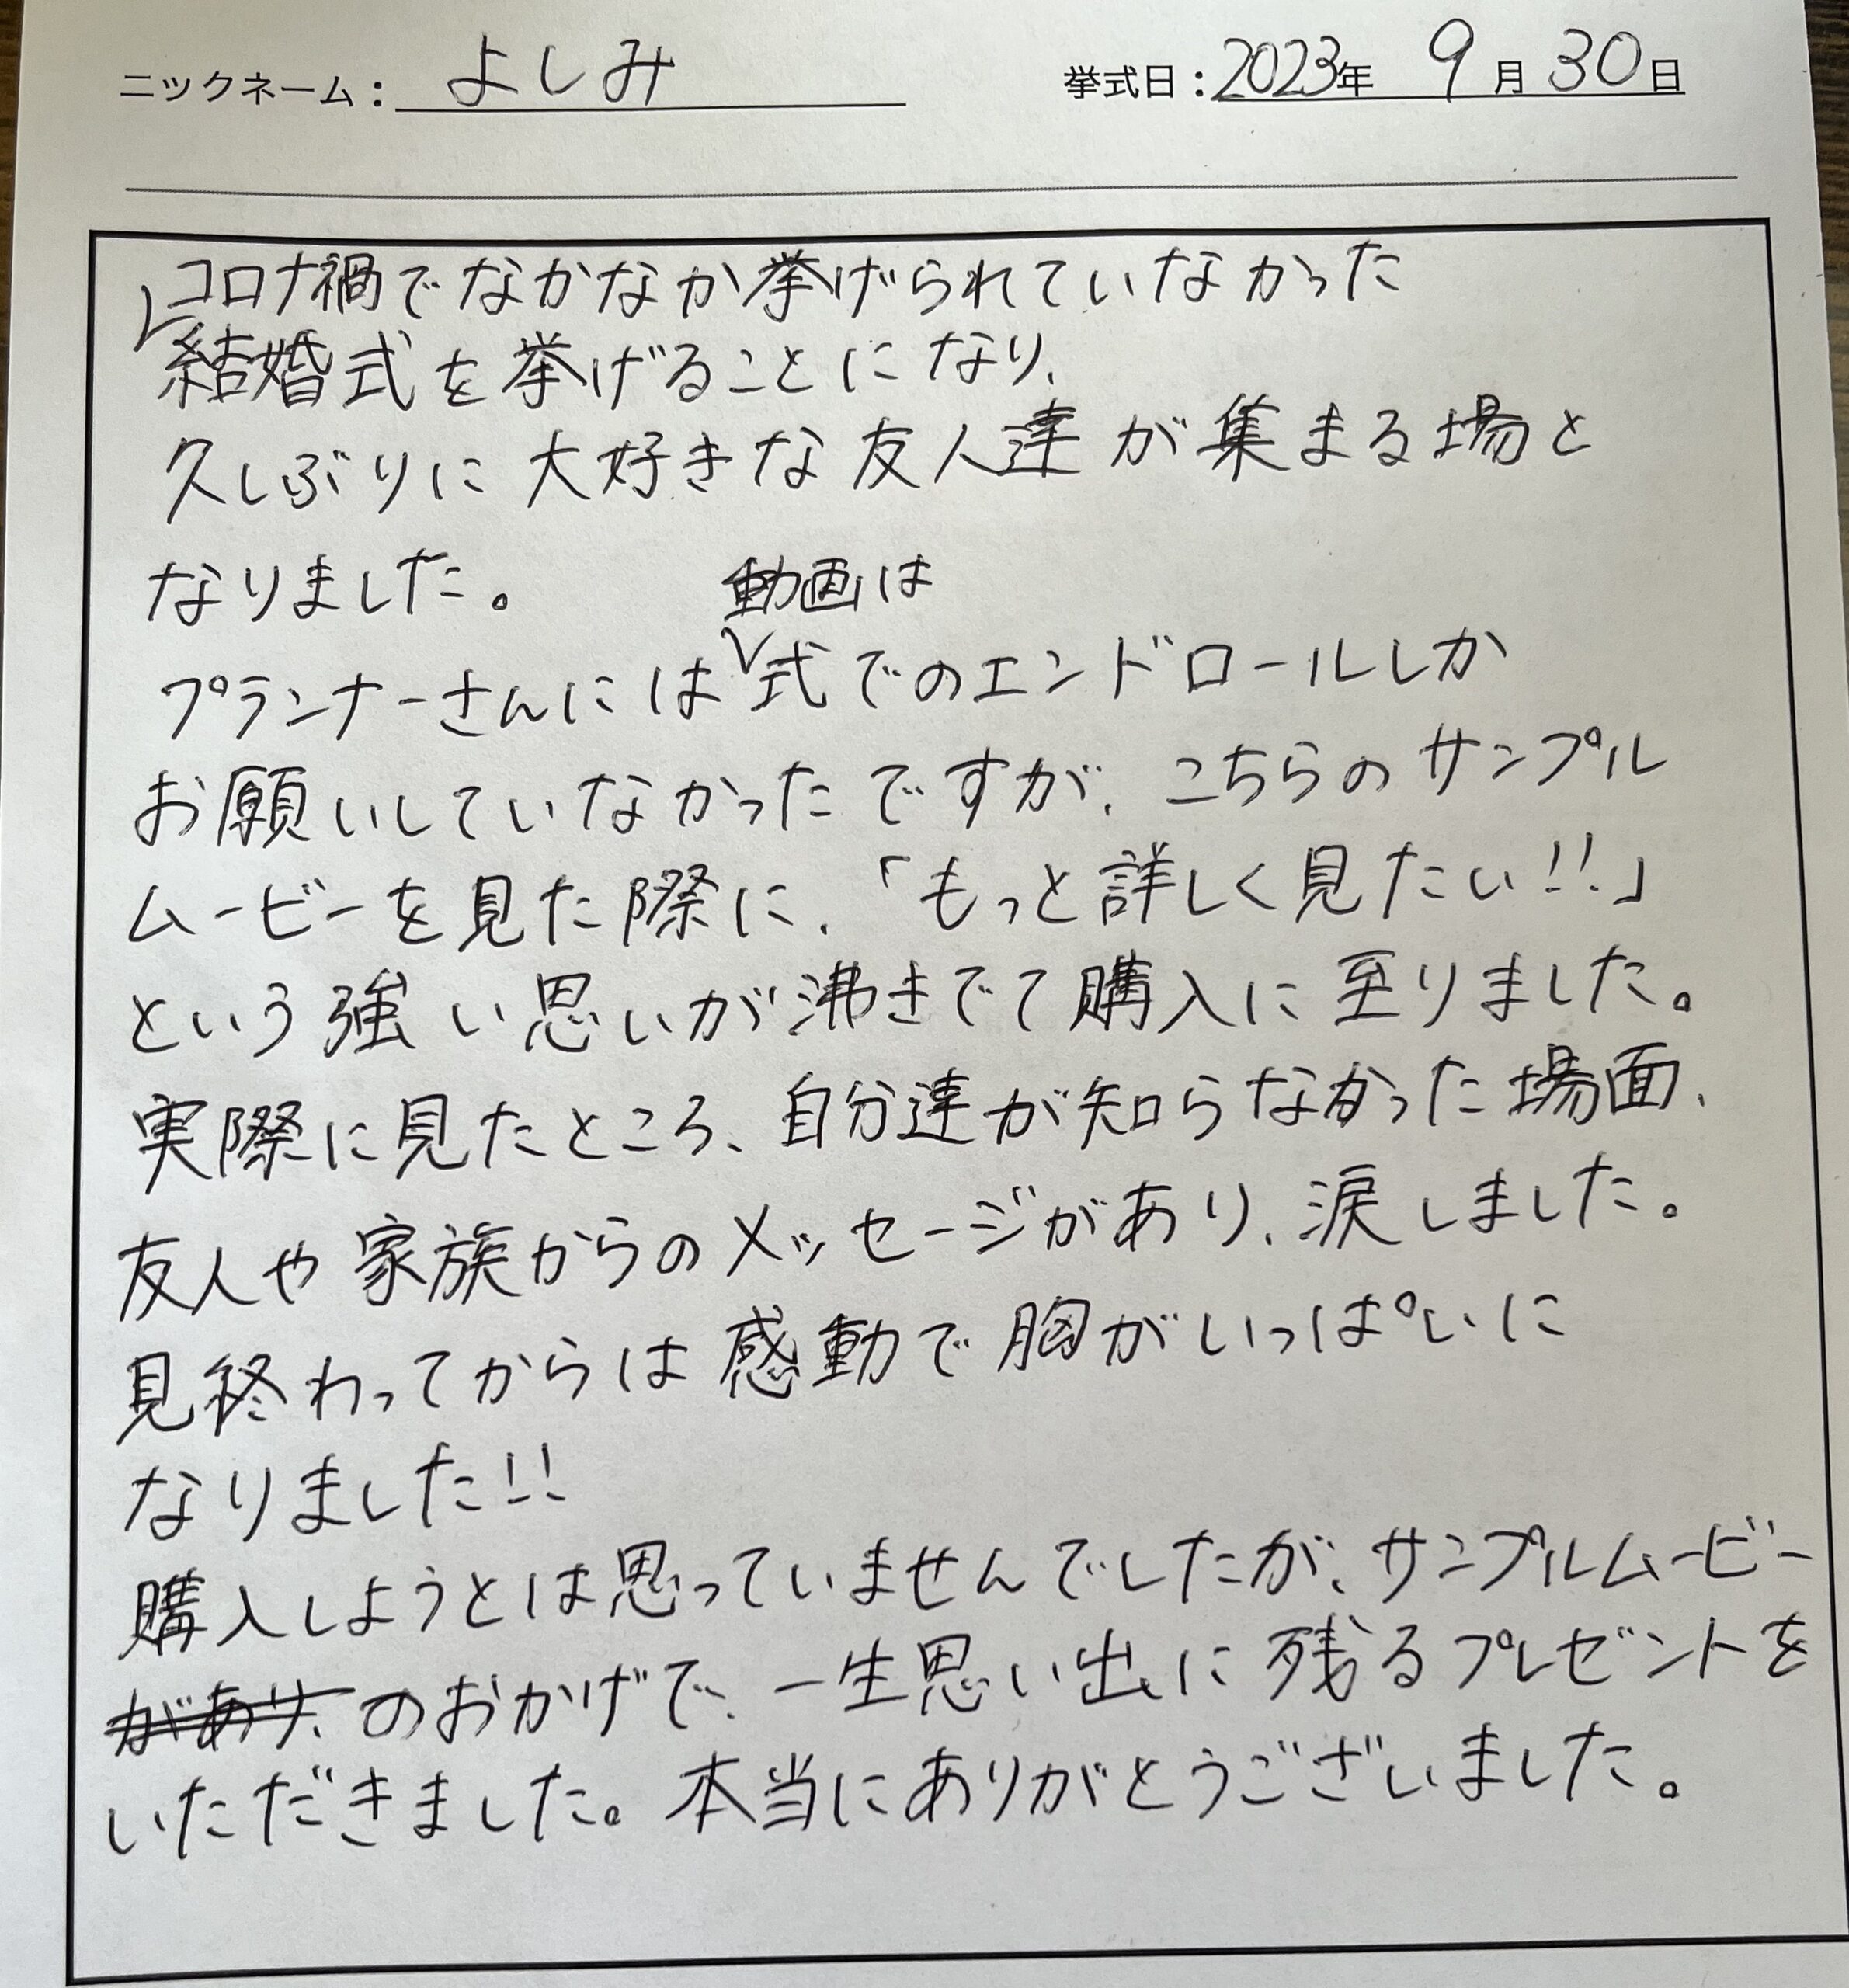 ニックネーム：よしみ 挙式日：2023年 9月30日
コロナ禍でなかなか挙げられていなかった
結婚式を挙げることになり、
久しぶりに大好きな友人達が集まる場と
なりました。
動画は
プランナーさんには式でのエンドロールしか
お願いしていなかったですが、こちらのサンプル
ムービーを見た際に、「もっと詳しく見たい!!」
という強い思いが沸きでて購入に至りました。
実際に見たところ、自分達が知らなかった場面、
友人や家族からのメッセージがあり、涙しました。
見終わってからは感動で胸がいっぱいに
なりました!!
購入しようとは思っていませんでしたが、サンプルムービー
があり、のおかげで、一生思い出に残るプレゼントを
いただきました。本当にありがとうございました。